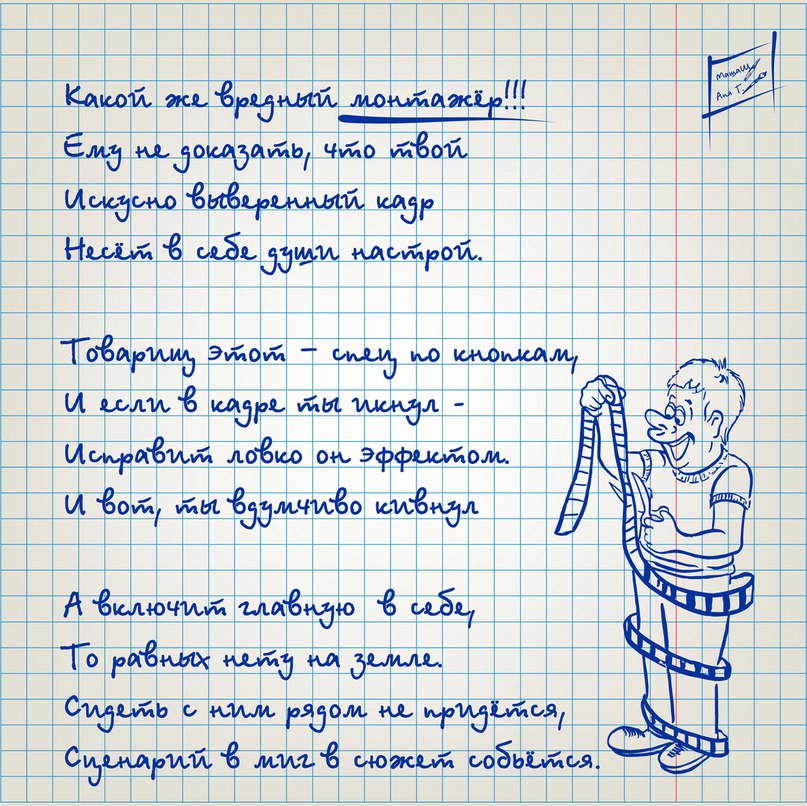 МашаШ
Аня Т.
Какой же вредный монтажёр!!!
Ему не доказать, что твой
Искусно выверенный кадр
Несёт в себе души настрой.
Товарищ этот – спец по кнопкам,
И если в кадре ты икнул -
Исправит ловко он эффектом.
И вот, ты вдумчиво кивнул
А включит главную в себе,
То равных нету на земле.
Сидеть с ним рядом не придётся,
Сценарий в миг в сюжет собьётся.